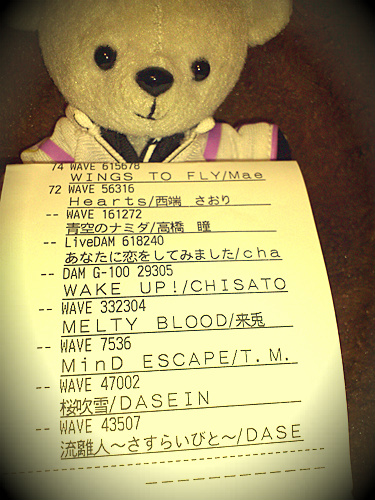 74 WAVE 615678
WINGS TO FLY/Mae
72 WAVE 56316
Hearts/西端 さおり
-- WAVE 161272
青空のナミダ/高橋 瞳
-- LiveDAM 618240
あなたに恋をしてみました/cha
-- DAM G-100 29305
WAKE UP!/CHISATO
-- WAVE 332304
MELTY BLOOD/来兎
-- WAVE 7536
MinD ESCAPE/T.M.
-- WAVE 47002
桜吹雪/DASEIN
-- WAVE 43507
流離人～さすらいびと～/DASE